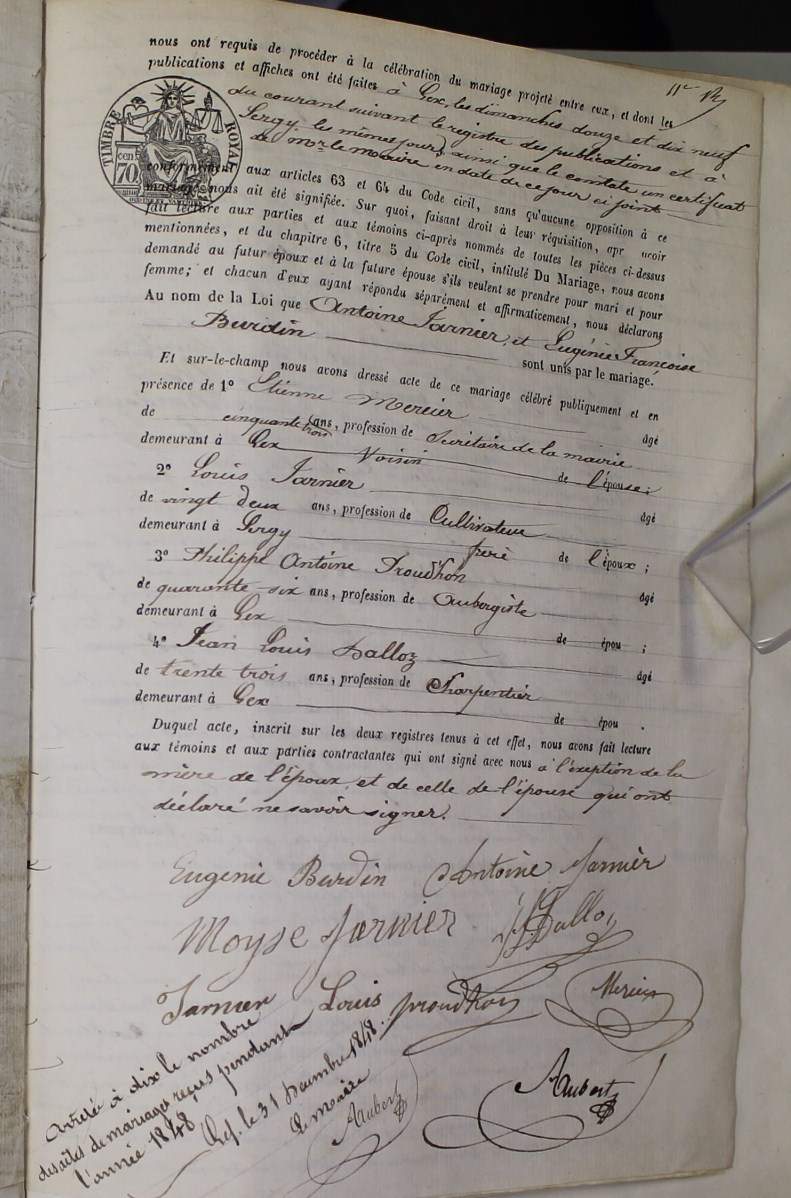 nous ont requis de procéder à la célébration du mariage projeté entre eux, et dont les
publications et affiches ont été faites à Gex, les dimanches douze et dix neuf
du courant suivant le registre des publications et à
Sergy les mêmes jours, ainsi que le constate un certificat
de Mr le maire en date de ce jour ci joint
TIMBRE ROYAL
cen
70
conformément aux articles 63 et 64 du Code civil, sans qu'aucune opposition à ce
mariage nous ait été signifiée. Sur quoi, faisant droit à leur réquisition, apr avoir
fait lecture aux parties et aux témoins ci-après nommés de toutes les pièces ci-dessus
mentionnées, et du chapitre 6, titre 5 du Code civil, intitulé Du Mariage, nous avons
demandé au futur époux et à la future épouse s'ils veulent se prendre pour mari et pour
femme; et chacun d'eux ayant répondu séparément et affirmativement, nous déclarons
Au nom de la Loi que Antoine Jarnier, et Eugénie Françoise
Burdin sont unis par le mariage.
Et sur-le-champ nous avons dressé acte de ce mariage célébré publiquement et en
présence de 1º Etienne Mercier âgé
de cinquante trois ans, profession de Secrétaire de la mairie
demeurant à Gex Voisin de l'épouse;
2º Louis Jarnier âgé
de vingt deux ans, profession de Cultivateur
demeurant à Sergy frère de l'époux;
3º Philippe Antoine Proudhon âgé
de quarante-six ans, profession de Aubergiste
demeurant à Gex de épou ;
4º Jean Louis Dalloz âgé
de trente trois ans, profession de Charpentier
demeurant à Gex de épou .
Duquel acte, inscrit sur les deux registres tenus à cet effet, nous avons fait lecture
aux témoins et aux parties contractantes qui ont signé avec nous à l'exeption de la
mère de l'époux, et de celle de l'épouse qui ont
déclaré ne savoir signer.
Eugenie Burdin Antoine Jarnier
Moyse Jarnier Dalloz
Jarnier Louis proudhon Mercier
Aubert
Arrêté à dix le nombre
des actes de mariages reçus pendant
l'année 1848
Gex, le 31 Décembre 1848.
Le maire
Aubert